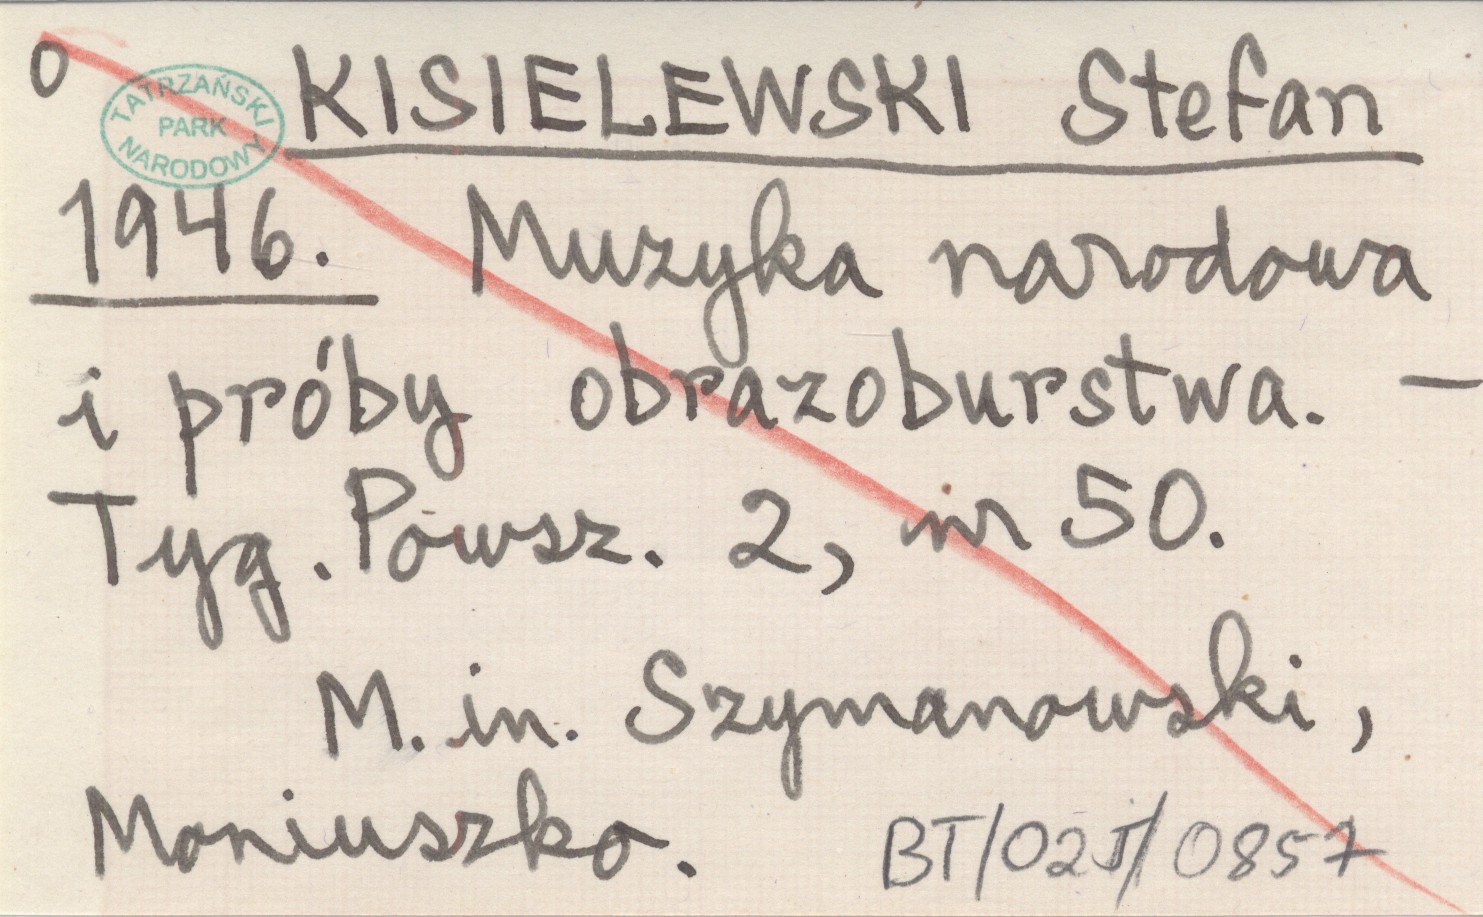 o KISIELEWSKI Stefan
TATRZAŃSKI
PARK
NARODOWY
1946. Muzyka narodowa
i próby obrazoburstwa. —
Tyg. Powsz. 2, nr 50.
M. in. Szymanowski,
Moniuszko.
BT/025/0857